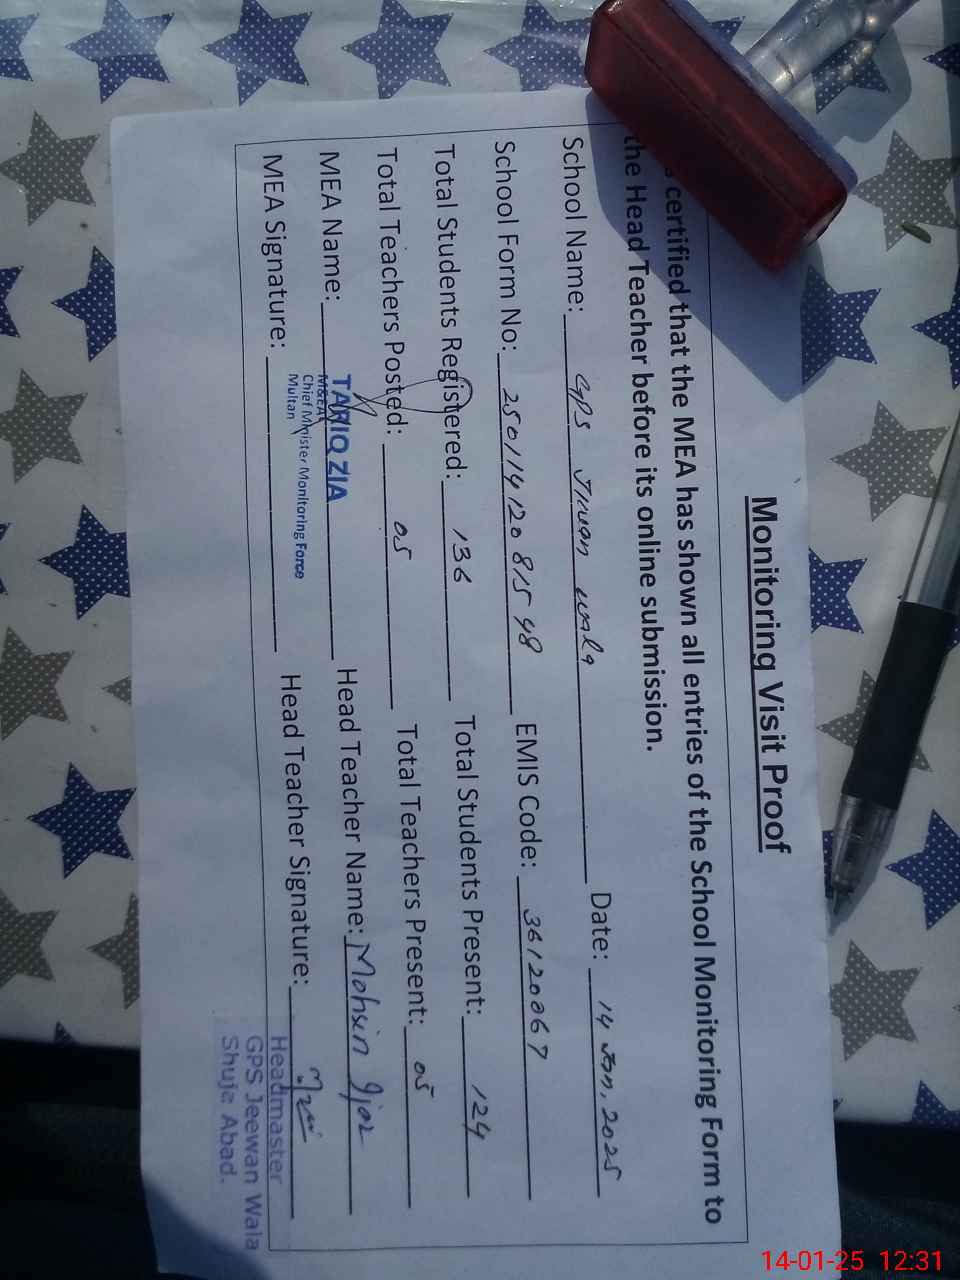 Monitoring Visit Proof
certified that the MEA has shown all entries of the School Monitoring Form to
the Head Teacher before its online submission.
School Name: GPS Jiwan wala Date: 14 Jan, 2025
School Form No: 25011412081548 EMIS Code: 36120067
Total Students Registered: 136 Total Students Present: 124
Total Teachers Posted: 05 Total Teachers Present: 05
MEA Name: TARIQ ZIA Head Teacher Name: Mohsin Ijaz
M&EA
Chief Minister Monitoring Force
Multan
MEA Signature: Head Teacher Signature:
Headmaster
GPS Jeewan Wala
Shuja Abad.
14-01-25 12:31